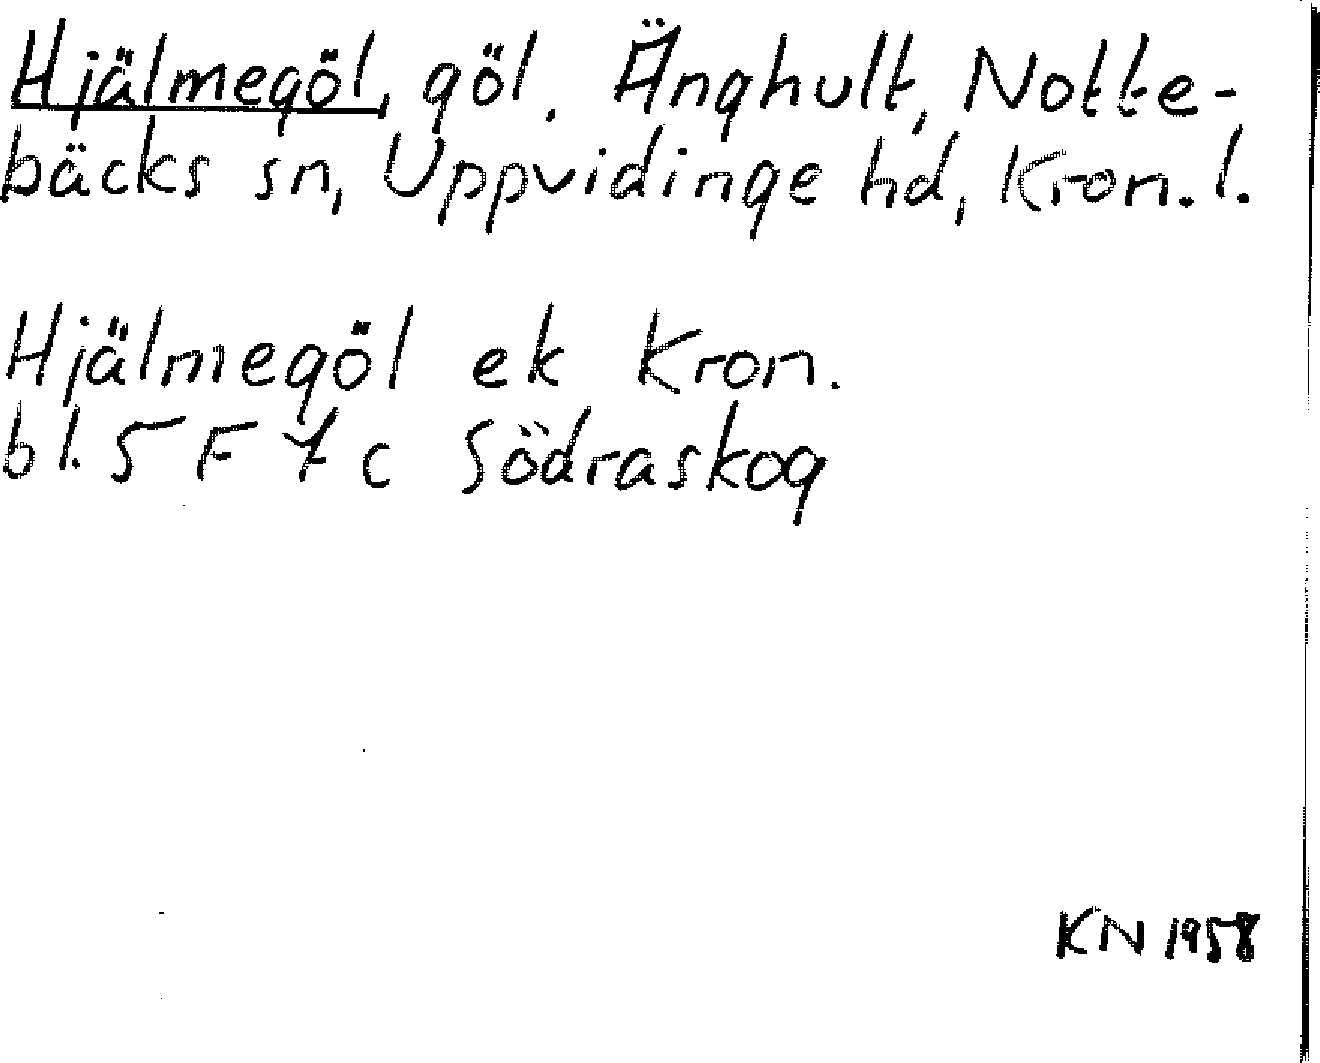 Hjälmegöl, göl. Änghult, Notte-
bäcks sn, Uppvidinge hd, Kron. l.
Hjälmegöl ek Kron.
bl. 5 F 7 c Södraskog
KN 1958